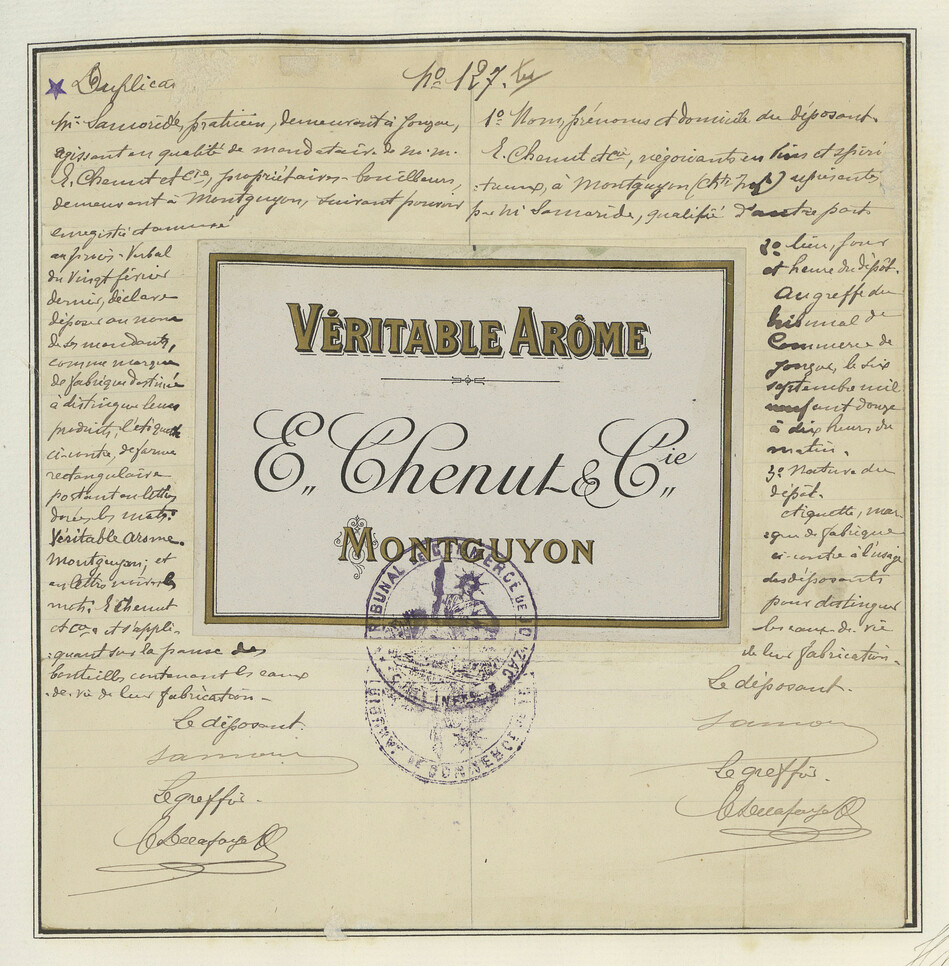 Duplicata
No 127. ter
Mr Samoride, praticien, demeurant à Jonzac,
agissant en qualité de mandataire de M.M.
E. Chenut et Cie, propriétaires-bouilleurs,
demeurant à Montguyon, suivant pouvoir
enregistré et annexé
au procès-Verbal
du Vingt février
dernier, déclare
déposer au nom
de ses mandants,
comme marque
de fabrique destinée
à distinguer leurs
produits, l'étiquette
ci-contre, de forme
rectangulaire
portant en lettres
dorées les mots:
Véritable Arome.
Montguyon; et
en lettres noires les
mots: E. Chenut
et Cie. et s'appli-
:quant sur la panse des
bouteilles contenant les eaux
-de-vie de leur fabrication-
Le déposant.
Le greffier.
1o Nom, prénoms et domicile du déposant.
E. Chenut et Cie, négociants en vins et spiri-
:tueux, à Montguyon (Chte Infre) représentés
par Mr Samoride, qualifié d'autre part.
2o lieu, jour
et heure du dépôt.
Au greffe du
tribunal de
Commerce de
Jonzac, le six
septembre mil
neuf cent douze
à dix heures du
matin.
3o Nature du
dépôt.
étiquette, mar-
:que de fabrique
ci-contre à l'usage
des déposants
pour distinguer
les eaux-de-vie
de leur fabrication.
Le déposant.
Le greffier.
VÉRITABLE ARÔME
E. Chenut & Cie
MONTGUYON
TRIBUNAL DE COMMERCE DE JONZAC